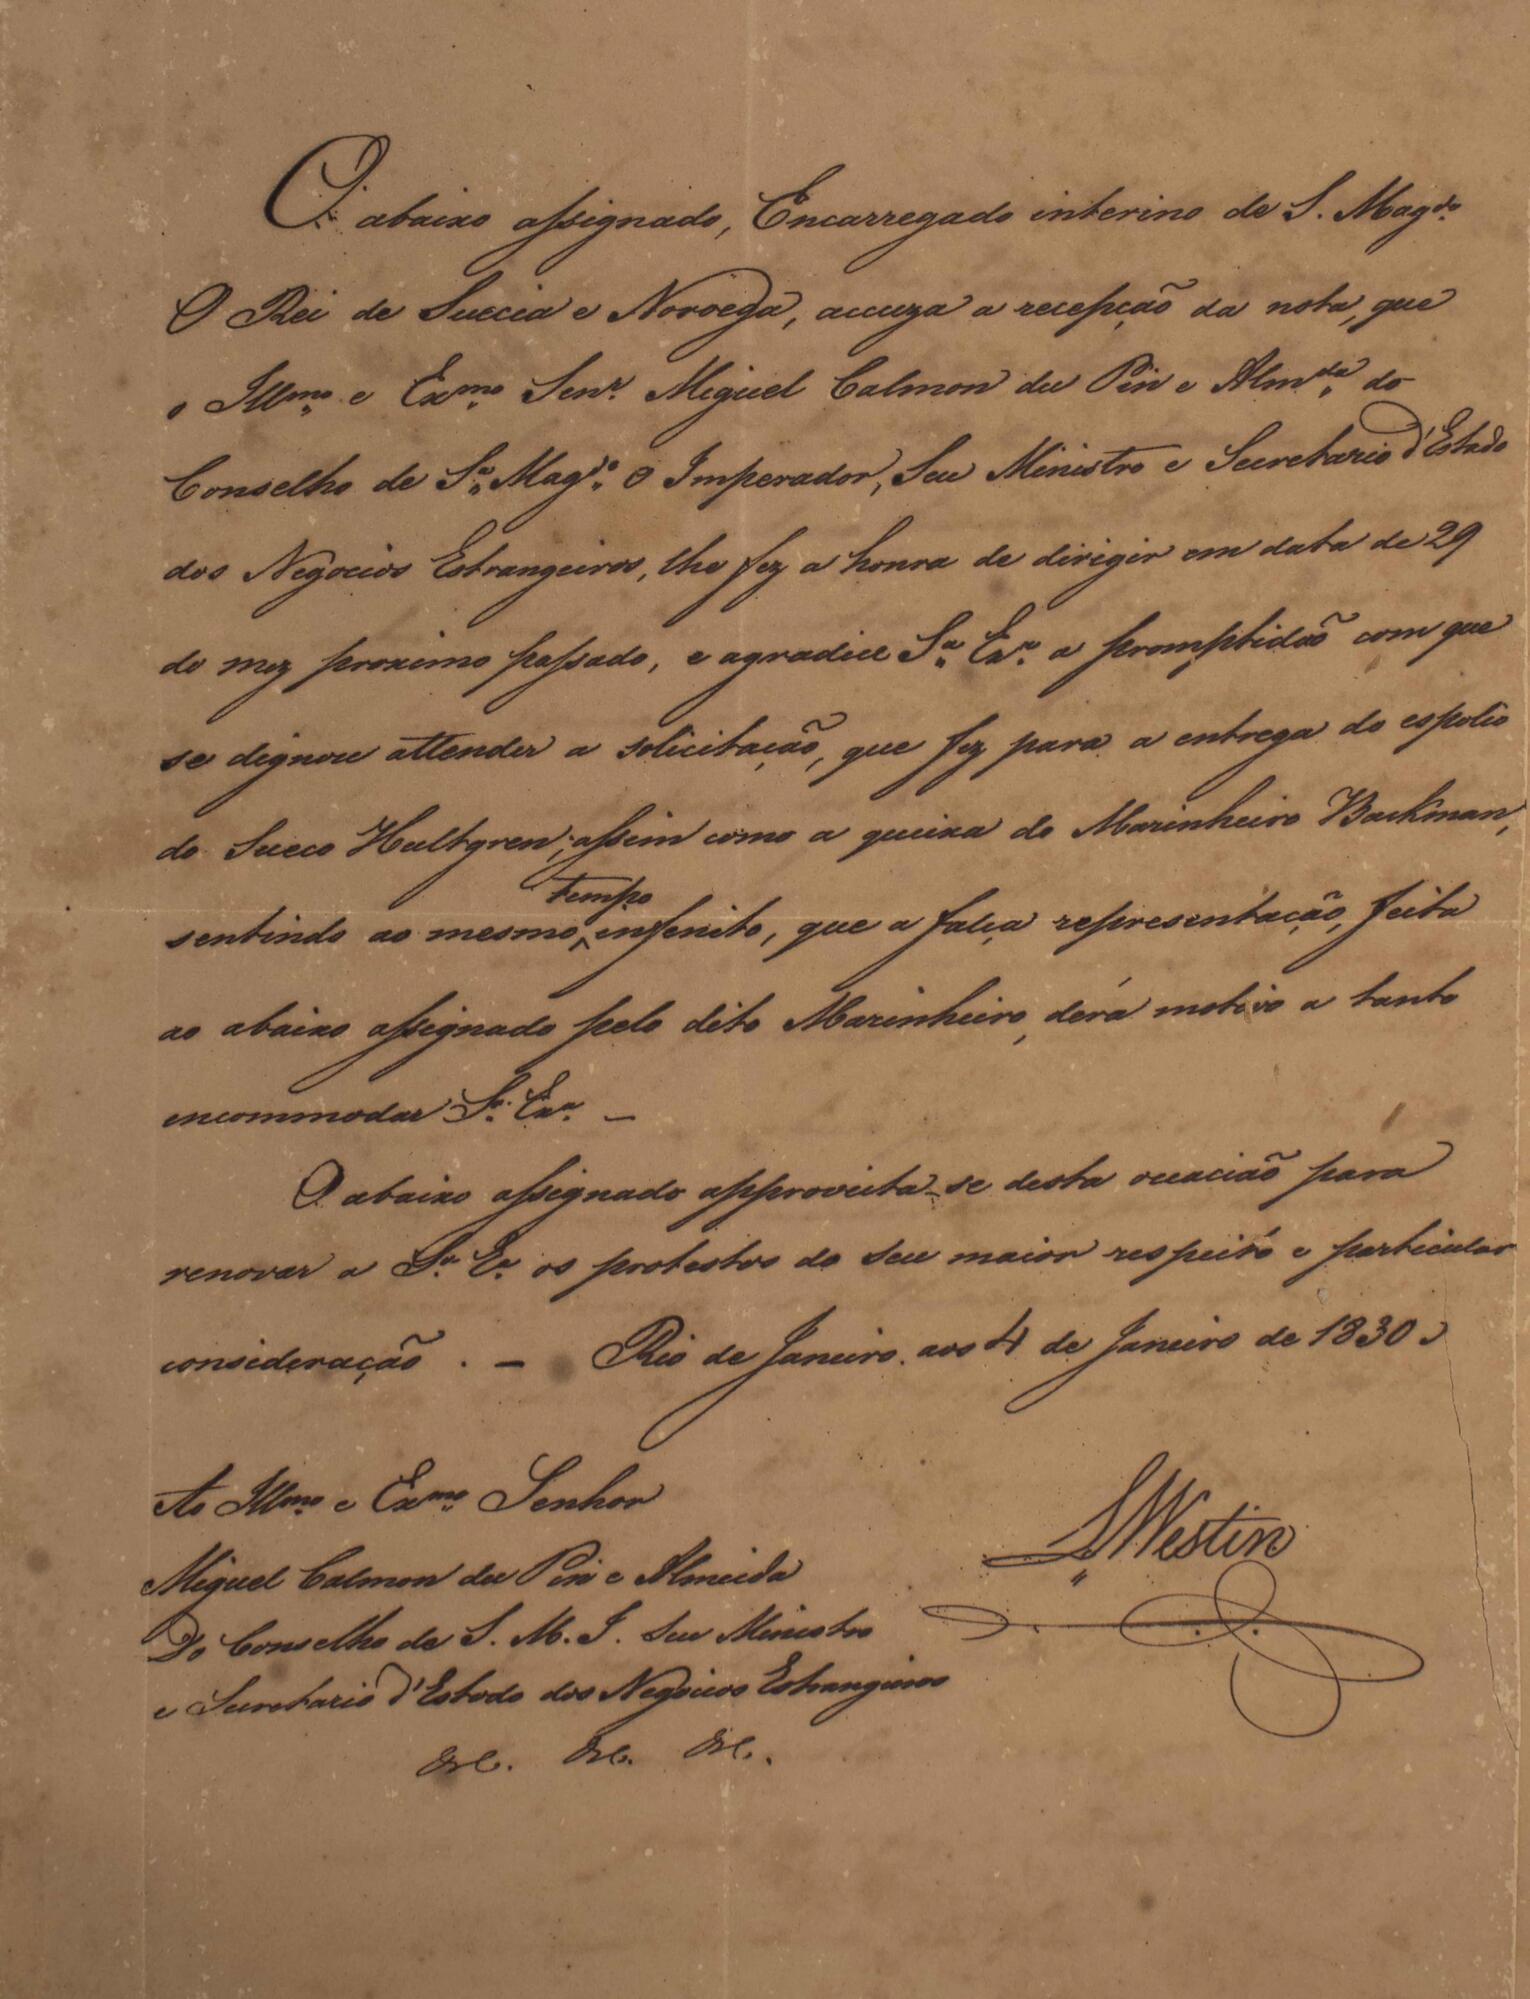 O abaixo assignado, Encarregado interino de S. Magde.
O Rei de Suecia e Noroega, accuza a recepção da nota, que
o Illmo. e Exmo. Senr. Miguel Calmon du Pin e Almda. do
Conselho de Sa. Magde. O Imperador, Seu Ministro e Secretario d'Estado
dos Negocios Estrangeiros, lhe fez a honra de dirigir em data de 29
do mez proximo passado, e agradice Sa. Exa. a promptidão com que
se dignou attender a solicitação, que fez para a entrega do espolio
do Sueco Hultgren, assim como a queixa do Marinheiro Backman,
tempo
sentindo ao mesmo infenito, que a falça representação, feita
ao abaixo assignado pelo dito Marinheiro, derá motivo a tanto
encommodar Sa. Exa. –
O abaixo assignado approveita-se desta occacião para
renovar a Sa. Ea. os protestos do seu maior respeito e particular
consideração. – Rio de Janeiro. aos 4 de Janeiro de 1830.
Ao Illmo. e Exmo. Senhor
Miguel Calmon du Pin e Almeida
Do Conselho de S. M. I. seu Ministro
e Secretario d'Estado dos Negocios Estrangeiros
&c. &c. &c.
L Westin